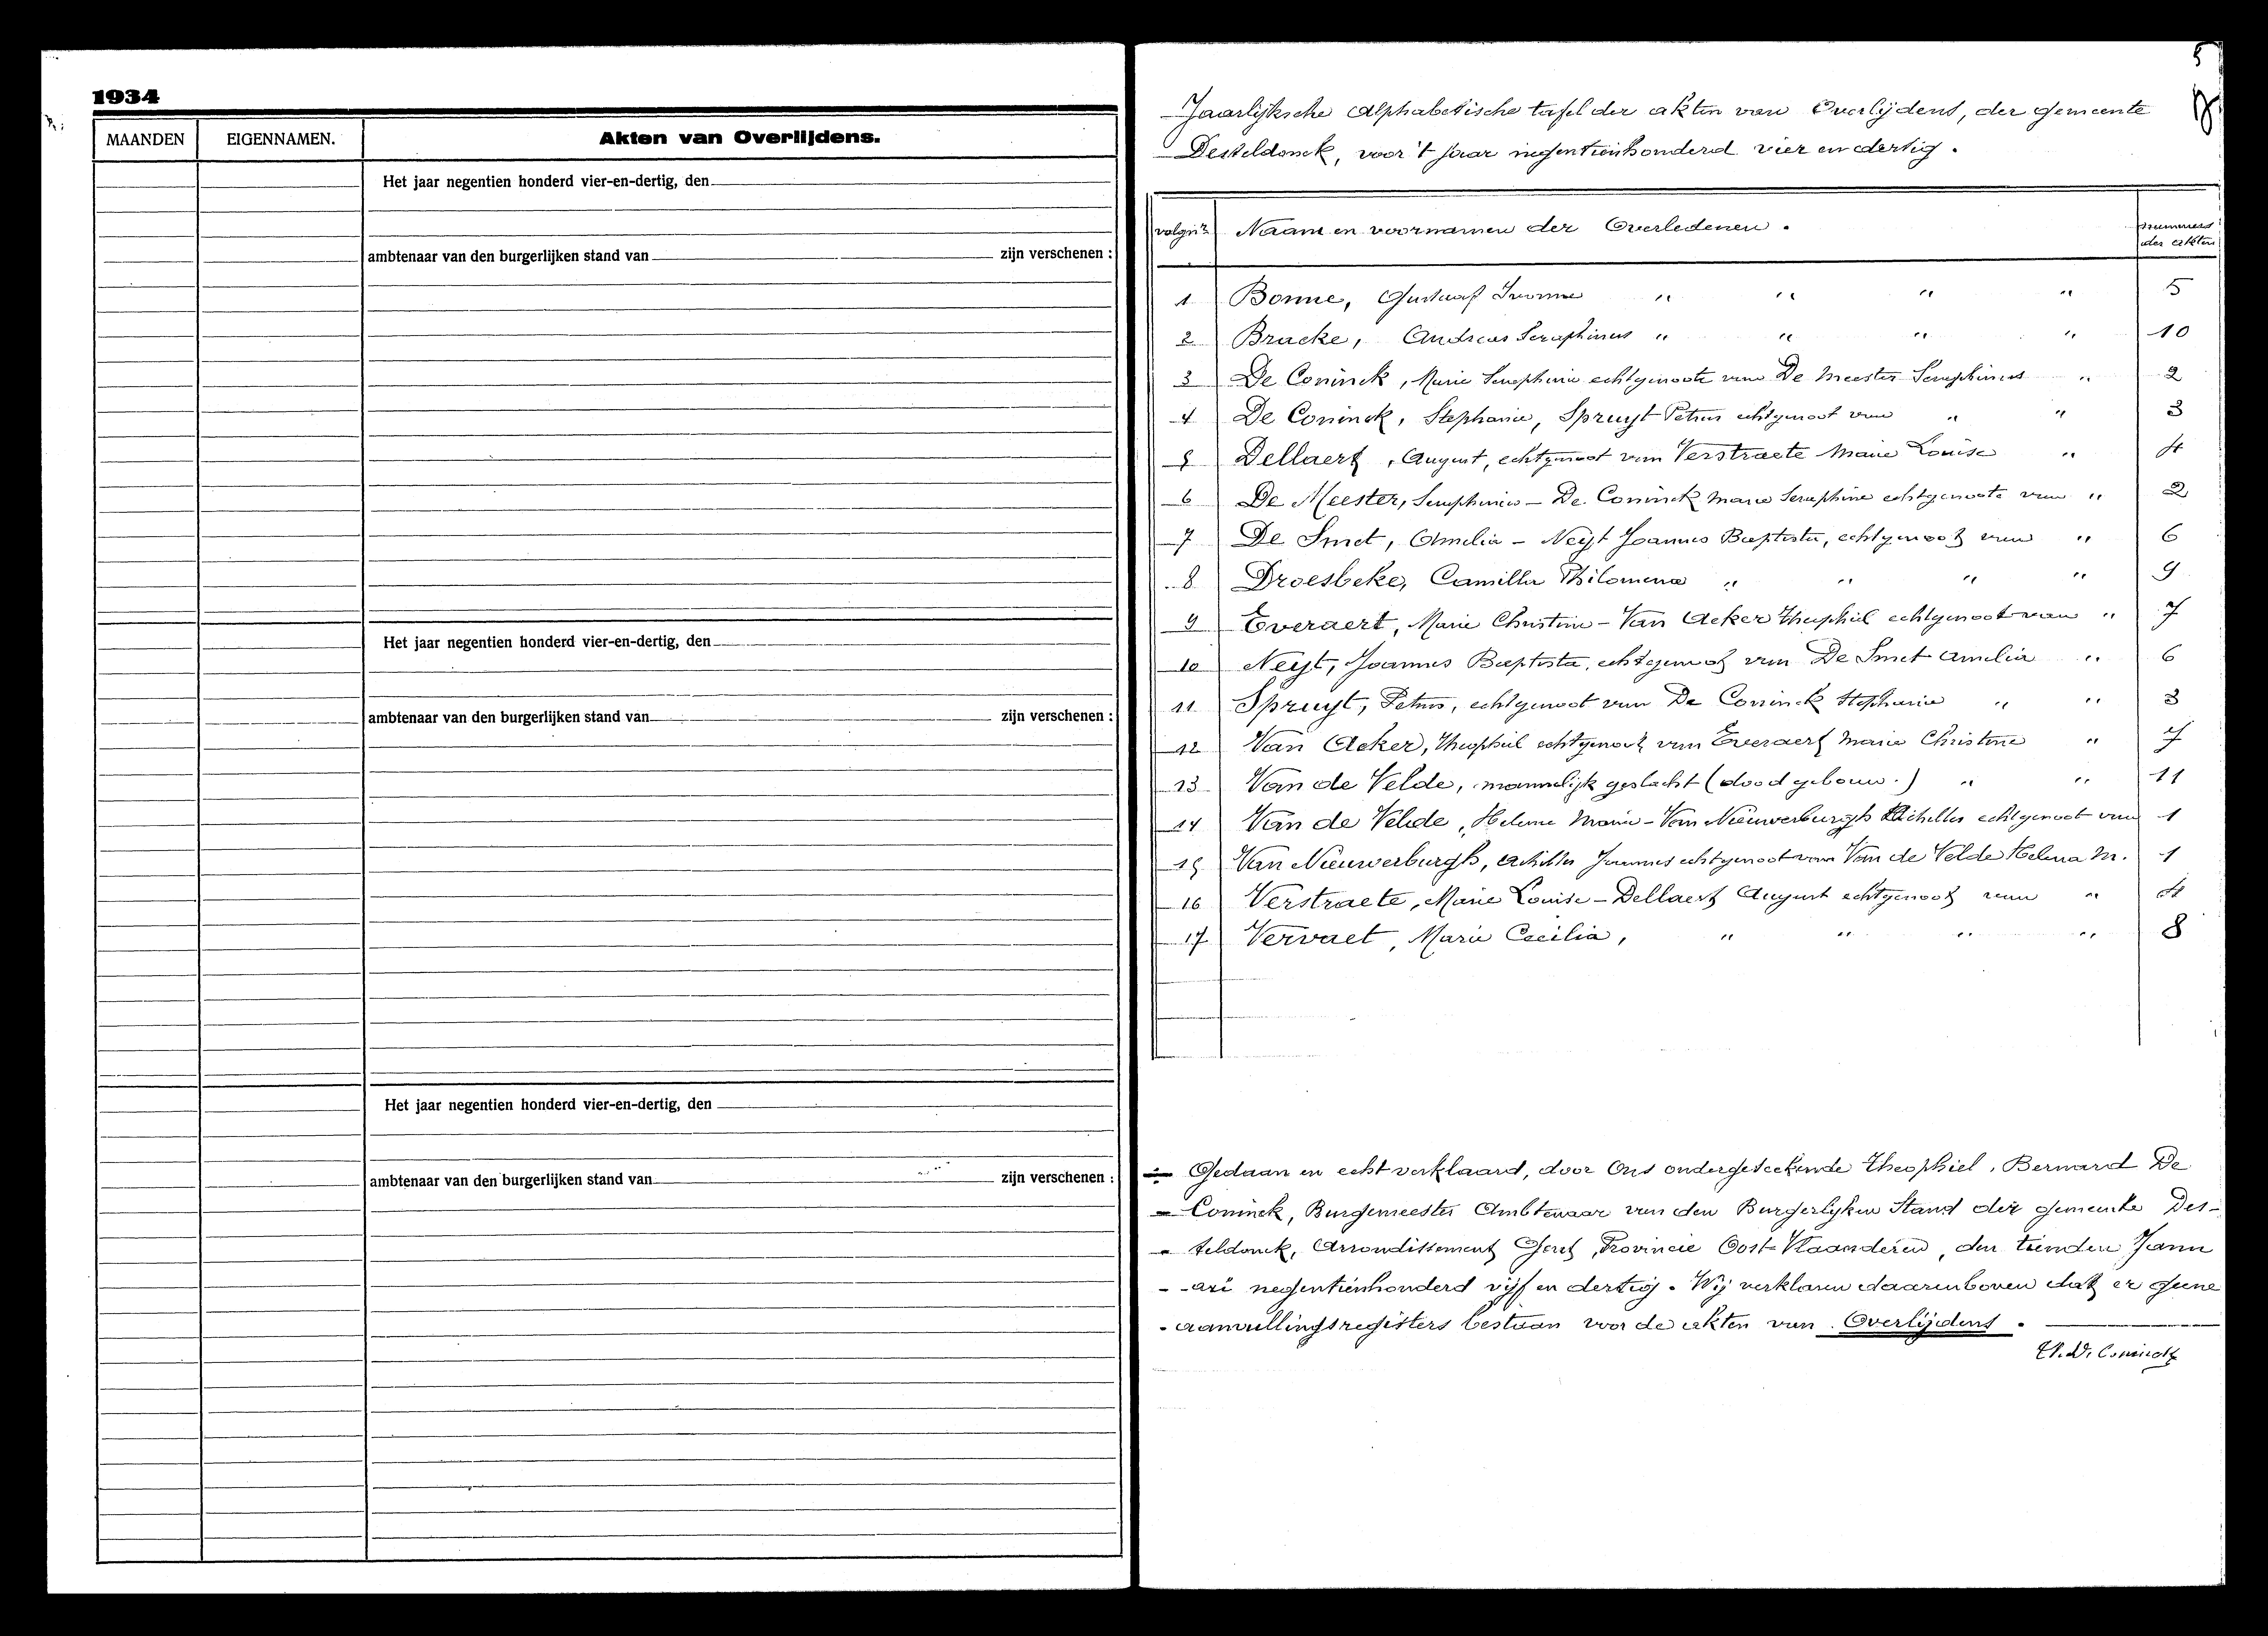 1934
MAANDEN EIGENNAMEN. Akten van Overlijdens.
Het jaar negentien honderd vier-en-dertig, den
ambtenaar van den burgerlijken stand van zijn verschenen :
Het jaar negentien honderd vier-en-dertig, den
ambtenaar van den burgerlijken stand van zijn verschenen :
Het jaar negentien honderd vier-en-dertig, den
ambtenaar van den burgerlijken stand van zijn verschenen :
5
Jaarlijksche Alphabetische tafel der akten van Overlijdens, der gemeente
Desteldonck, voor 't jaar negentienhonderd vier en dertig.
volgnr Naam en voornamen der Overledenen. nummers
der akten
1 Bonne, Gustaaf Ivonne " " " " 5
2 Bracke, Andreas Seraphinus " " " " 10
3 De Coninck, Marie Seraphine echtgenoote van De Meester Seraphinus " 2
4 De Coninck, Stephanie, Spruyt Petrus echtgenoot van " " 3
5 Dellaert, August, echtgenoot van Verstraete Marie Louise " 4
6 De Meester, Seraphinus - De Coninck Marie Seraphine echtgenoote van " 2
7 De Smet, Amelia - Neyt Joannes Baptista, echtgenoot van " 6
8 Droesbeke, Camilla Philomena " " " " 9
9 Everaert, Marie Christine - Van Acker Theophiel echtgenoot van " 7
10 Neyt, Joannes Baptista, echtgenoot van De Smet Amelia " 6
11 Spruyt, Petrus, echtgenoot van De Coninck Stephanie " " 3
12 Van Acker, Theophiel echtgenoot van Everaert Marie Christine " 7
13 Van de Velde, mannelijk geslacht (dood gebouw.) " " 11
14 Van de Velde, Helena Marie - Van Nieuwerburgh Achilles echtgenoot van 1
15 Van Nieuwerburgh, Achilles Joannes echtgenoot van Van de Velde Helena M. 1
16 Verstraete, Marie Louise - Dellaert August echtgenoot van " 4
17 Vervaet, Marie Cecilia, " " " " 8
Gedaan en echt verklaard, door Ons ondergeteekende Theophiel, Bernard De
Coninck, Burgemeester Ambtenaar van den Burgerlyken Stand der gemeente Des-
teldonck, Arrondissement Gent, Provincie Oost-Vlaanderen, den tienden Janu
-ari negentienhonderd vijf en dertig. Wij verklaren daarenboven dat er geene
aanvullingsregisters bestaan voor de akten van Overlijdens.
Th. De Coninck